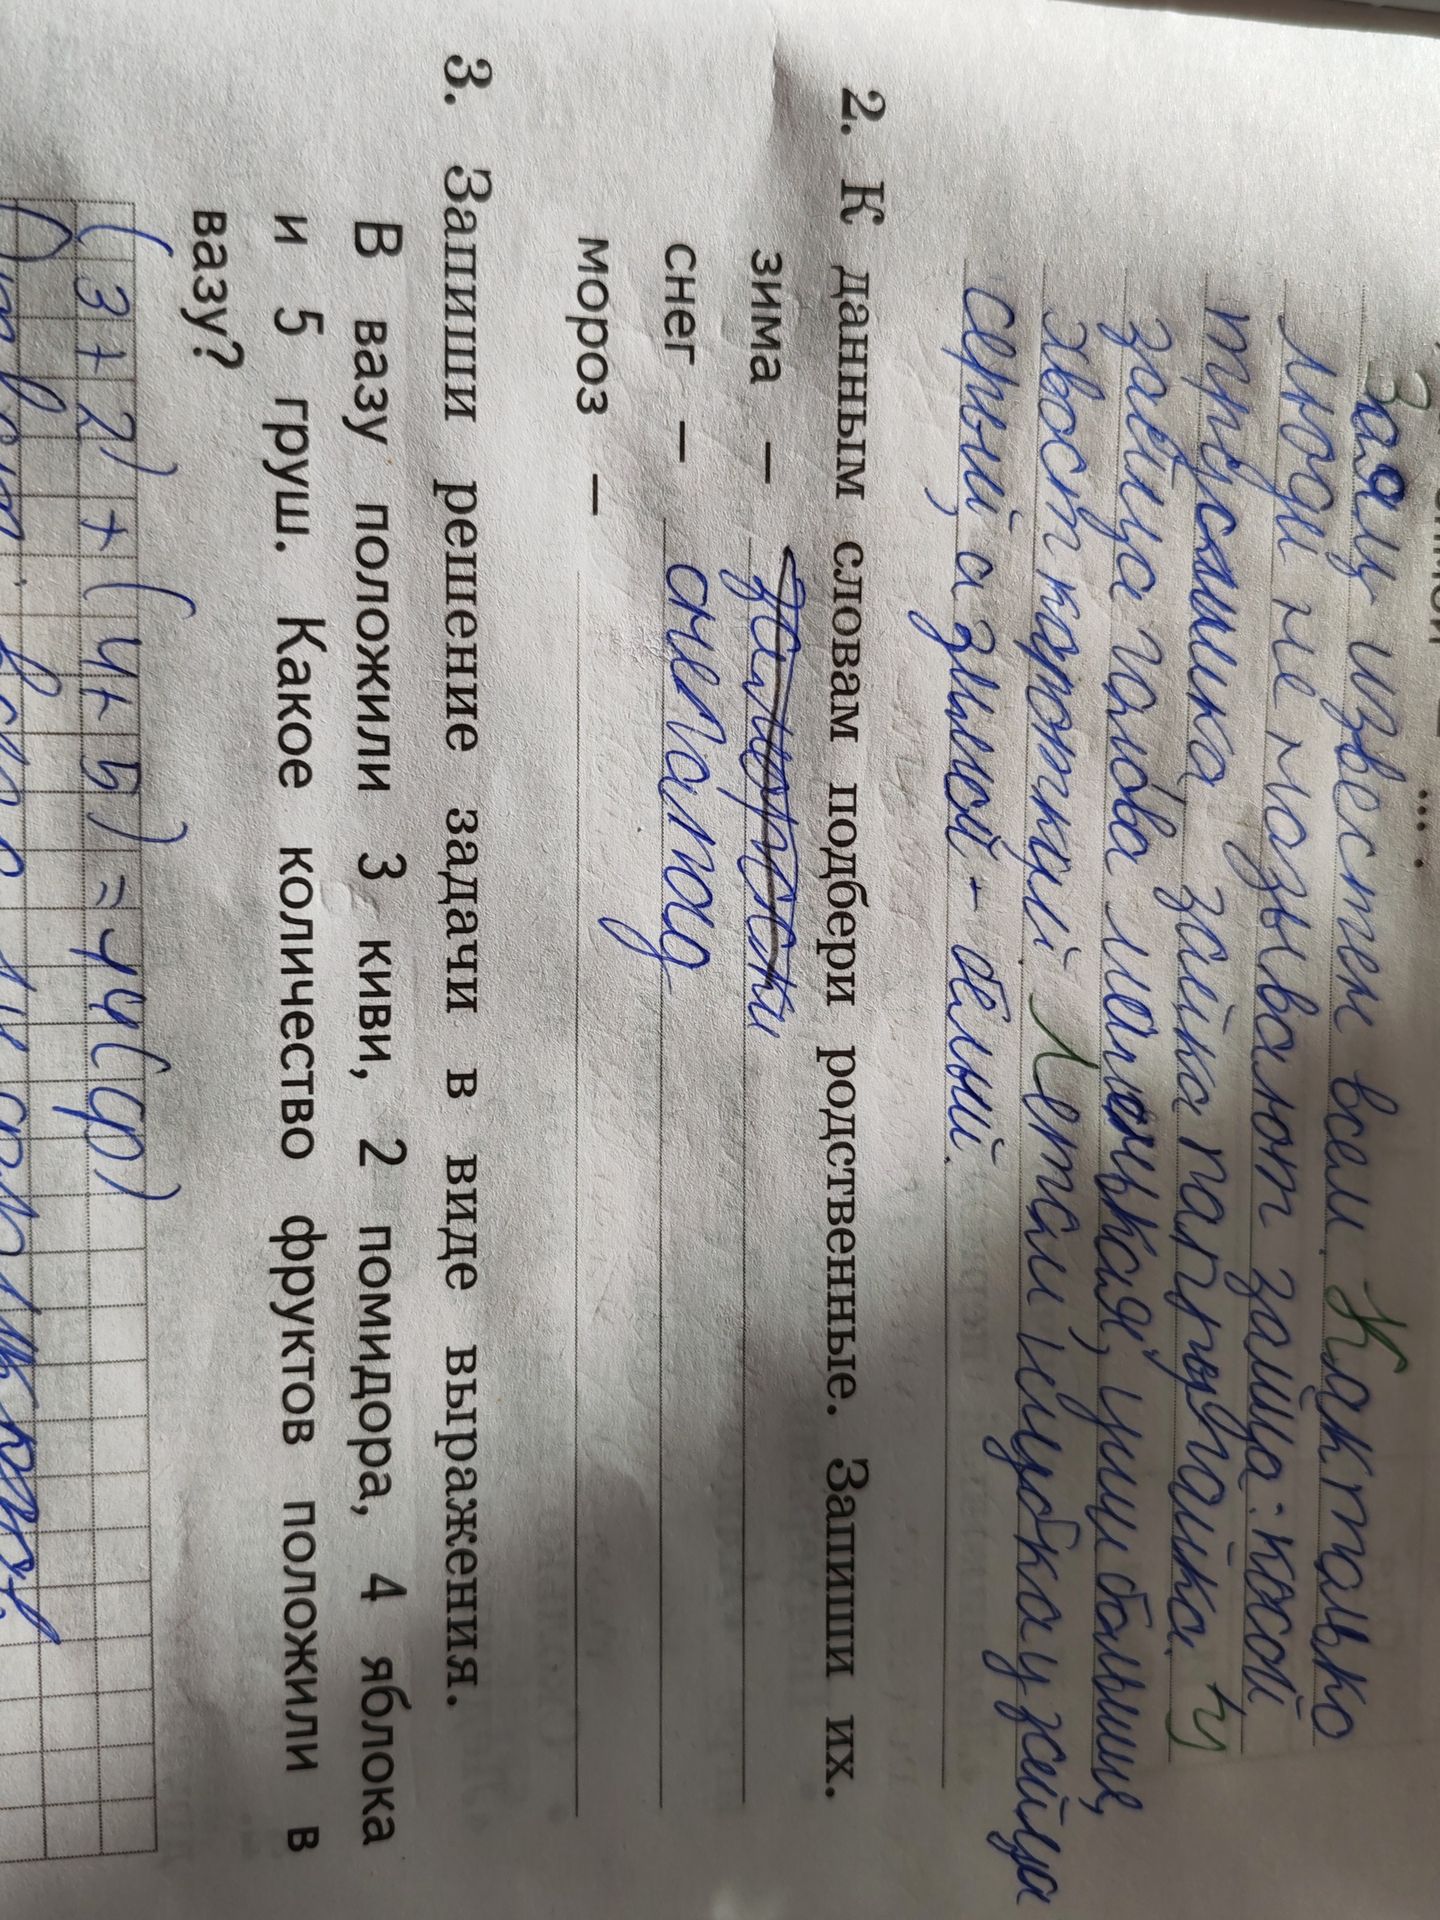 Заяц известен всем. Как только
люди не называют зайца: косой,
трусишка, зайка попрыгайка. У
зайца голова маленькая, уши большие,
хвост короткий. Летом шубка у зайца
серый, а зимой - белый.
2. К данным словам подбери родственные. Запиши их.
зима —
снег — снегопад
мороз —
3. Запиши решение задачи в виде выражения.
В вазу положили 3 киви, 2 помидора, 4 яблока
и 5 груш. Какое количество фруктов положили в
вазу?
(3+2)+(4+5)=14(ф)